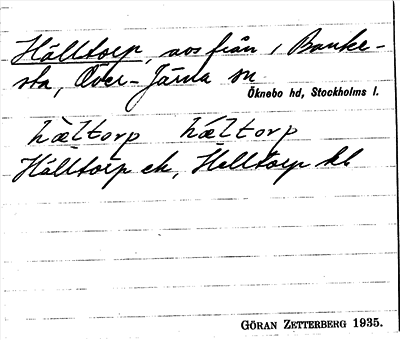 Hälltorp, avs från 1 Banke-
sta, Över-Järna sn
Öknebo hd, Stockholms l.
hæltorp hæltorp
Hälltorp ek, Helltorp kb
GÖRAN ZETTERBERG 1935.